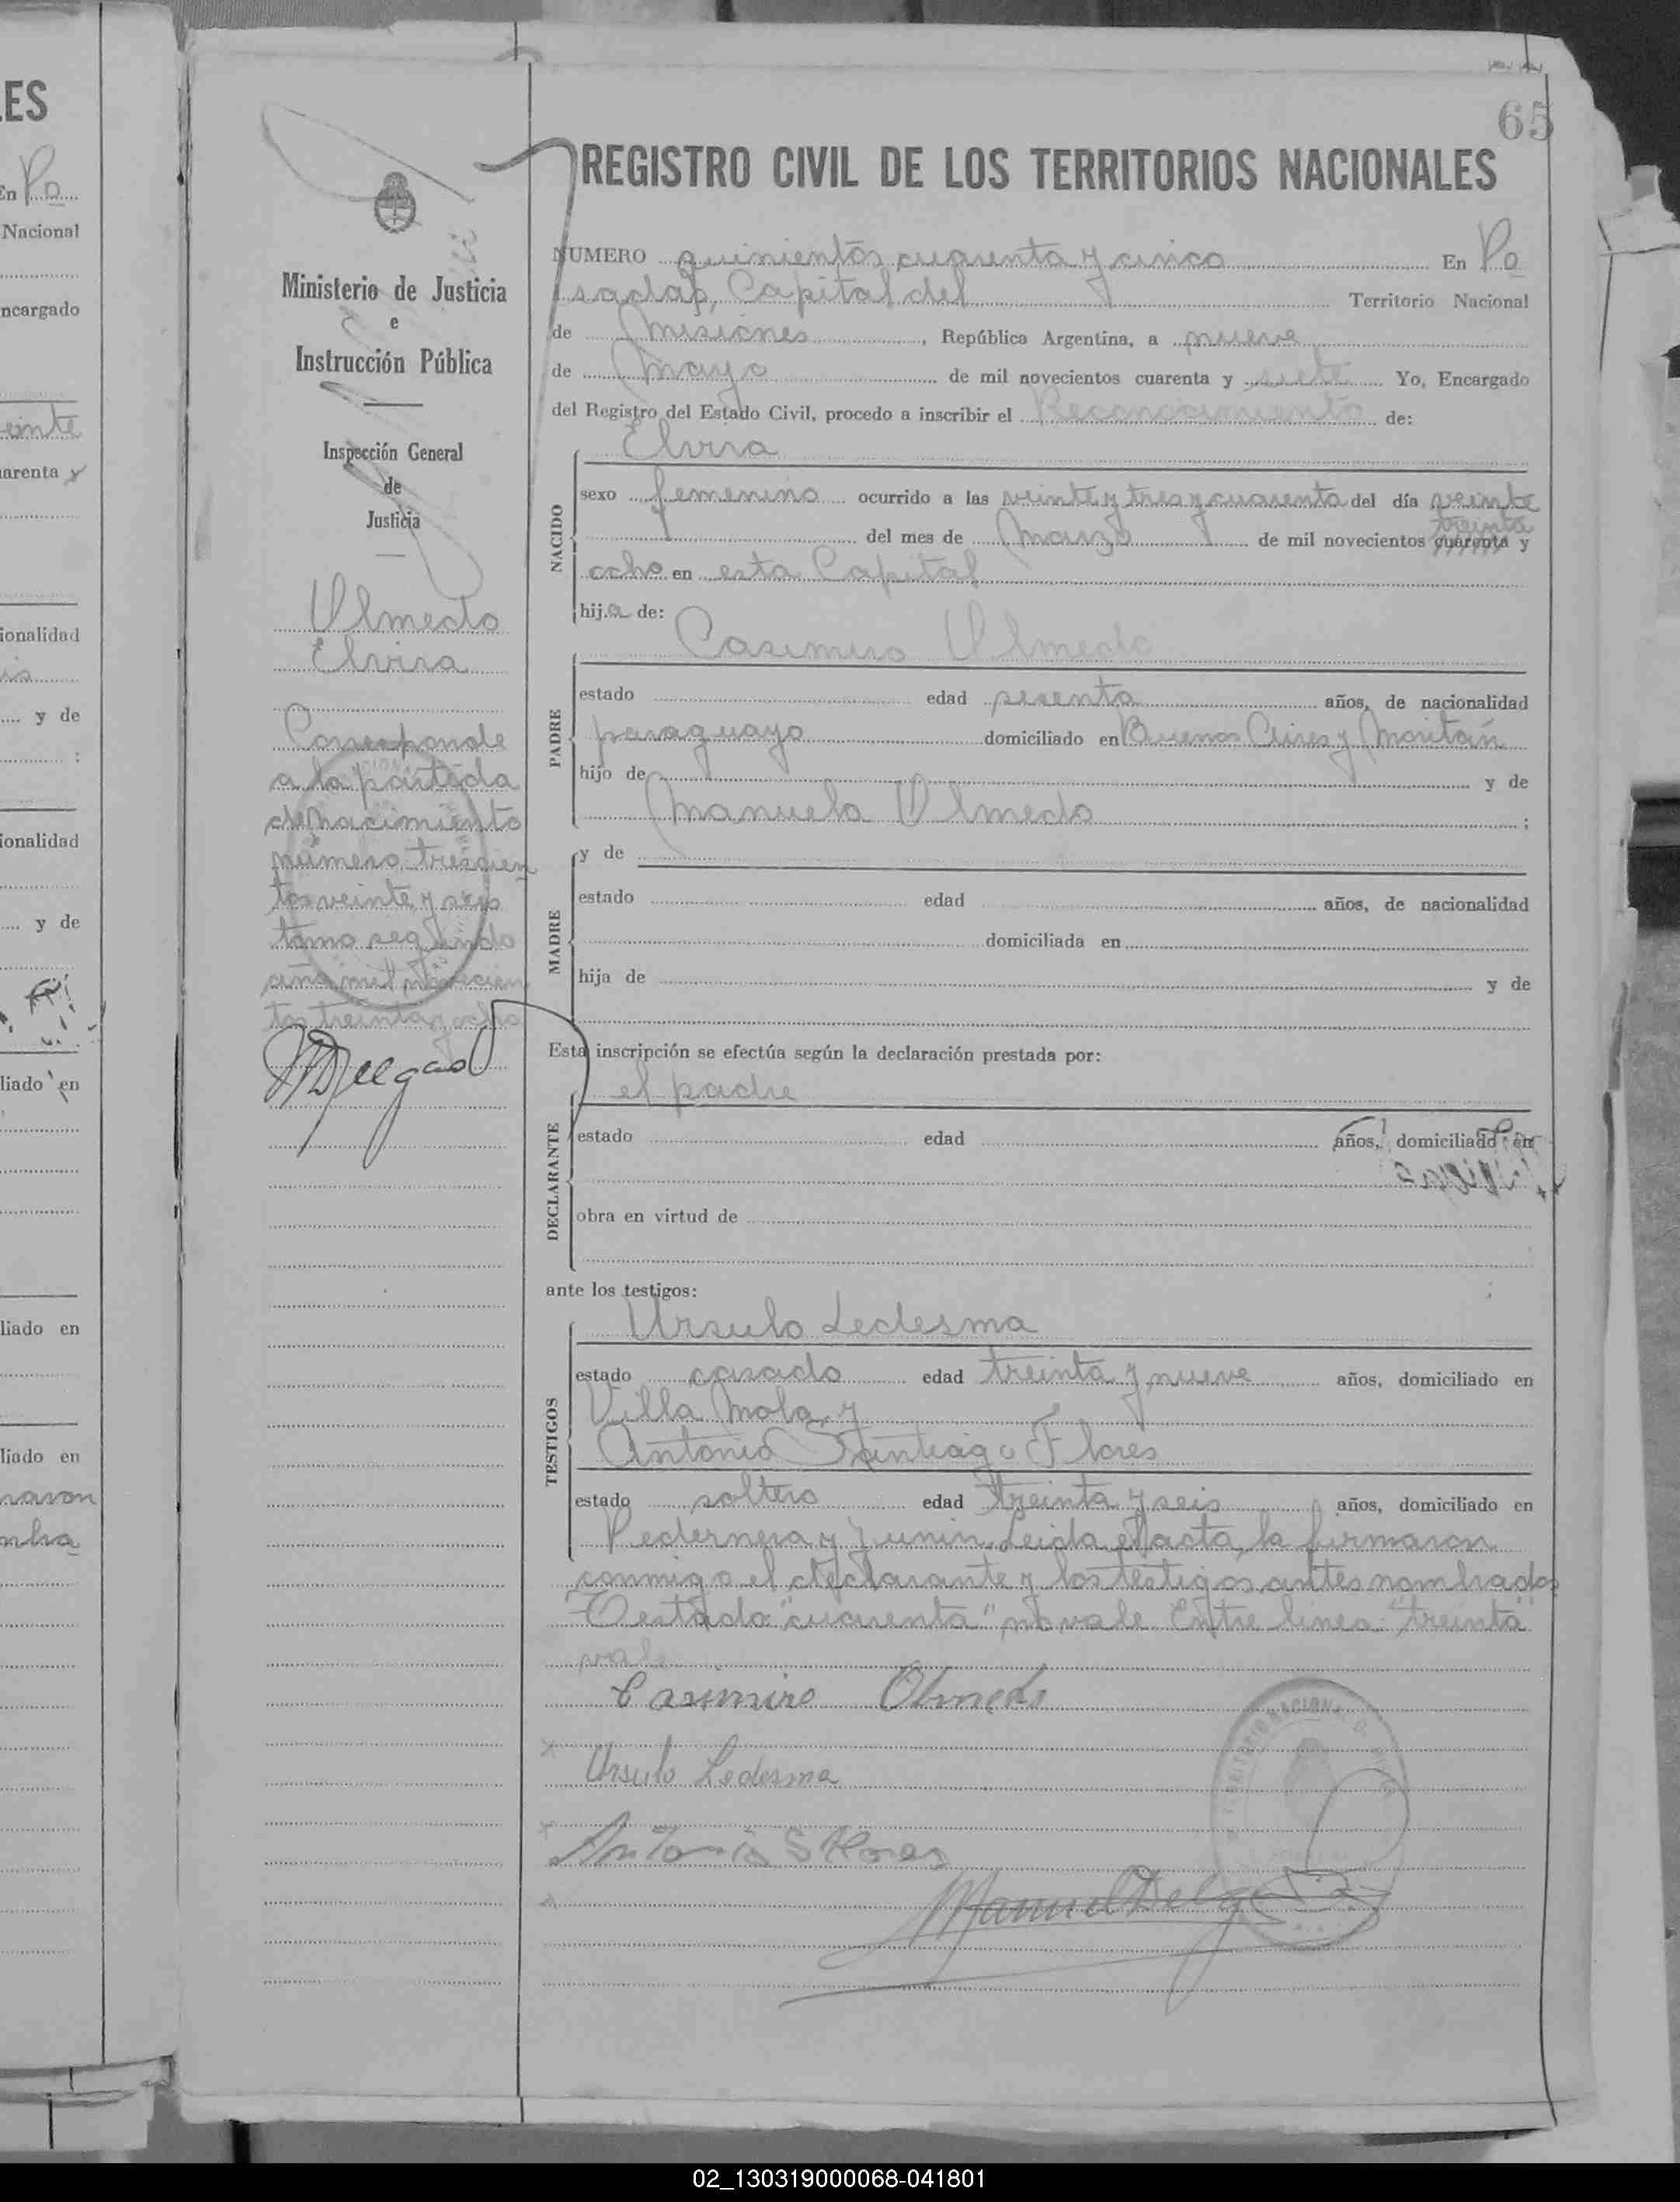 65
REGISTRO CIVIL DE LOS TERRITORIOS NACIONALES
Ministerio de Justicia
e
Instrucción Pública
Inspección General
de
Justicia
Olmedo
Elvira
Corresponde
a la partida
de nacimiento
número trescien
tos veinte y seis
tomo segundo
año mil novecien
tos treinta y ocho
MDelgado
NUMERO quinientos cuarenta y cinco En Po
sadas, Capital del Territorio Nacional
de Misiones, República Argentina, a nueve
de Mayo de mil novecientos cuarenta y siete Yo, Encargado
del Registro del Estado Civil, procedo a inscribir el Reconocimiento de:
NACIDO
Elvira
sexo femenino ocurrido a las veinte y tres y cuarenta del día veinte
treinta
del mes de Marzo de mil novecientos cuarenta y
ocho en esta Capital
hija de:
PADRE
Casimiro Olmedo
estado edad sesenta años, de nacionalidad
paraguayo domiciliado en Buenos Aires y Moritán
hijo de y de
Manuela Olmedo ;
MADRE
y de
estado edad años, de nacionalidad
domiciliada en
hija de y de
Esta inscripción se efectúa según la declaración prestada por:
DECLARANTE
el padre
estado edad años, domiciliado en
obra en virtud de
ante los testigos:
TESTIGOS
Ursulo Ledesma
estado casado edad treinta y nueve años, domiciliado en
Villa Mola, y
Antonio Santiago Flores
estado soltero edad treinta y seis años, domiciliado en
Pedernera y Junin. Leida el acta, la firmaron
conmigo el declarante y los testigos antes nombrados
Testado "cuarenta" no vale. Entre linea: "treinta"
vale
Casimiro Olmedo
Ursulo Ledesma
Antonio S Flores
Manuel Delgado
ES
En Po
Nacional
ncargado
einte
uarenta y
ionalidad
is
y de
:
ionalidad
y de
liado en
liado en
liado en
maron
mbra
02_130319000068-041801